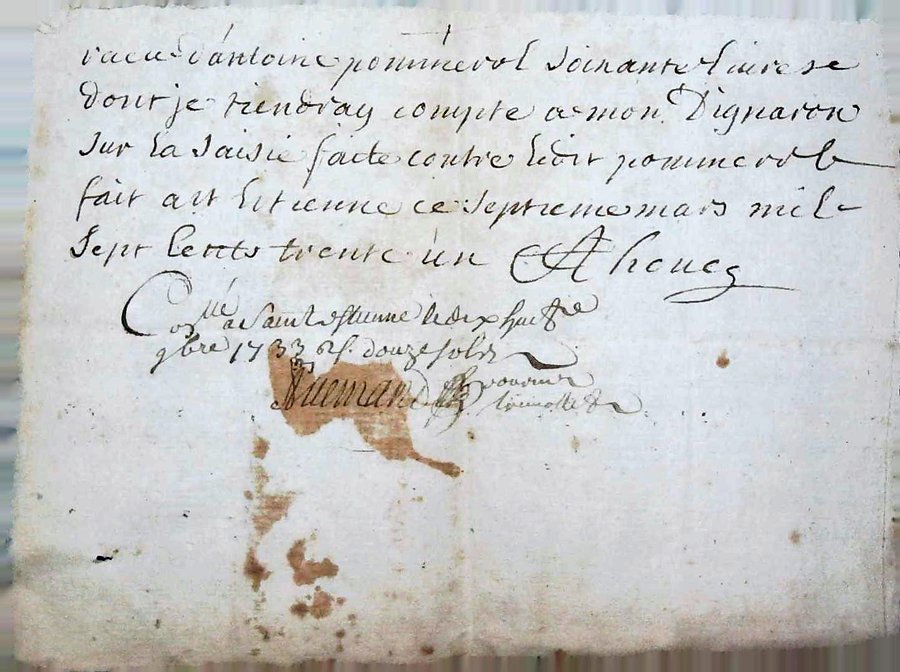 raeu d'antoine pommerol soinante liurese
dont je tiendray compte a mon Dignaron
sur la saisie facte contre ledit pommerol
fait a st Etienne ce septieme mars mil
sept Cents trente un
Con.lle a Saint estienne le dix huit
9bre 1733 douze sols